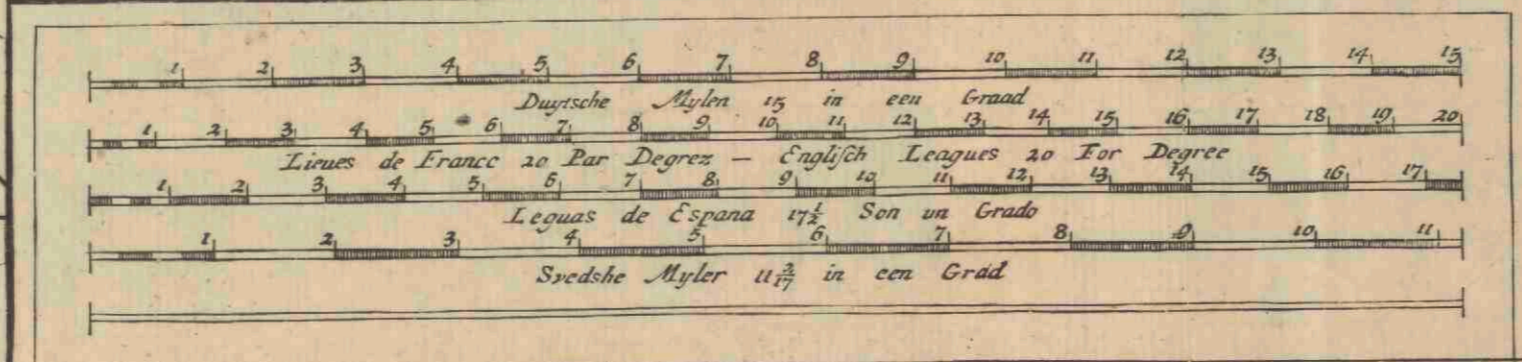 1 2 3 4 5 6 7 8 9 10 11 12 13 14 15
Duytsche Mylen 15 in een Graad
1 2 3 4 5 6 7 8 9 10 11 12 13 14 15 16 17 18 19 20
Lieues de France 20 Par Degrez — Engliſch Leagues 20 For Degree
1 2 3 4 5 6 7 8 9 10 11 12 13 14 15 16 17
Leguas de Espana 17½ Son un Grado
1 2 3 4 5 6 7 8 9 10 11
Svedshe Myler 11 2/17 in een Grad